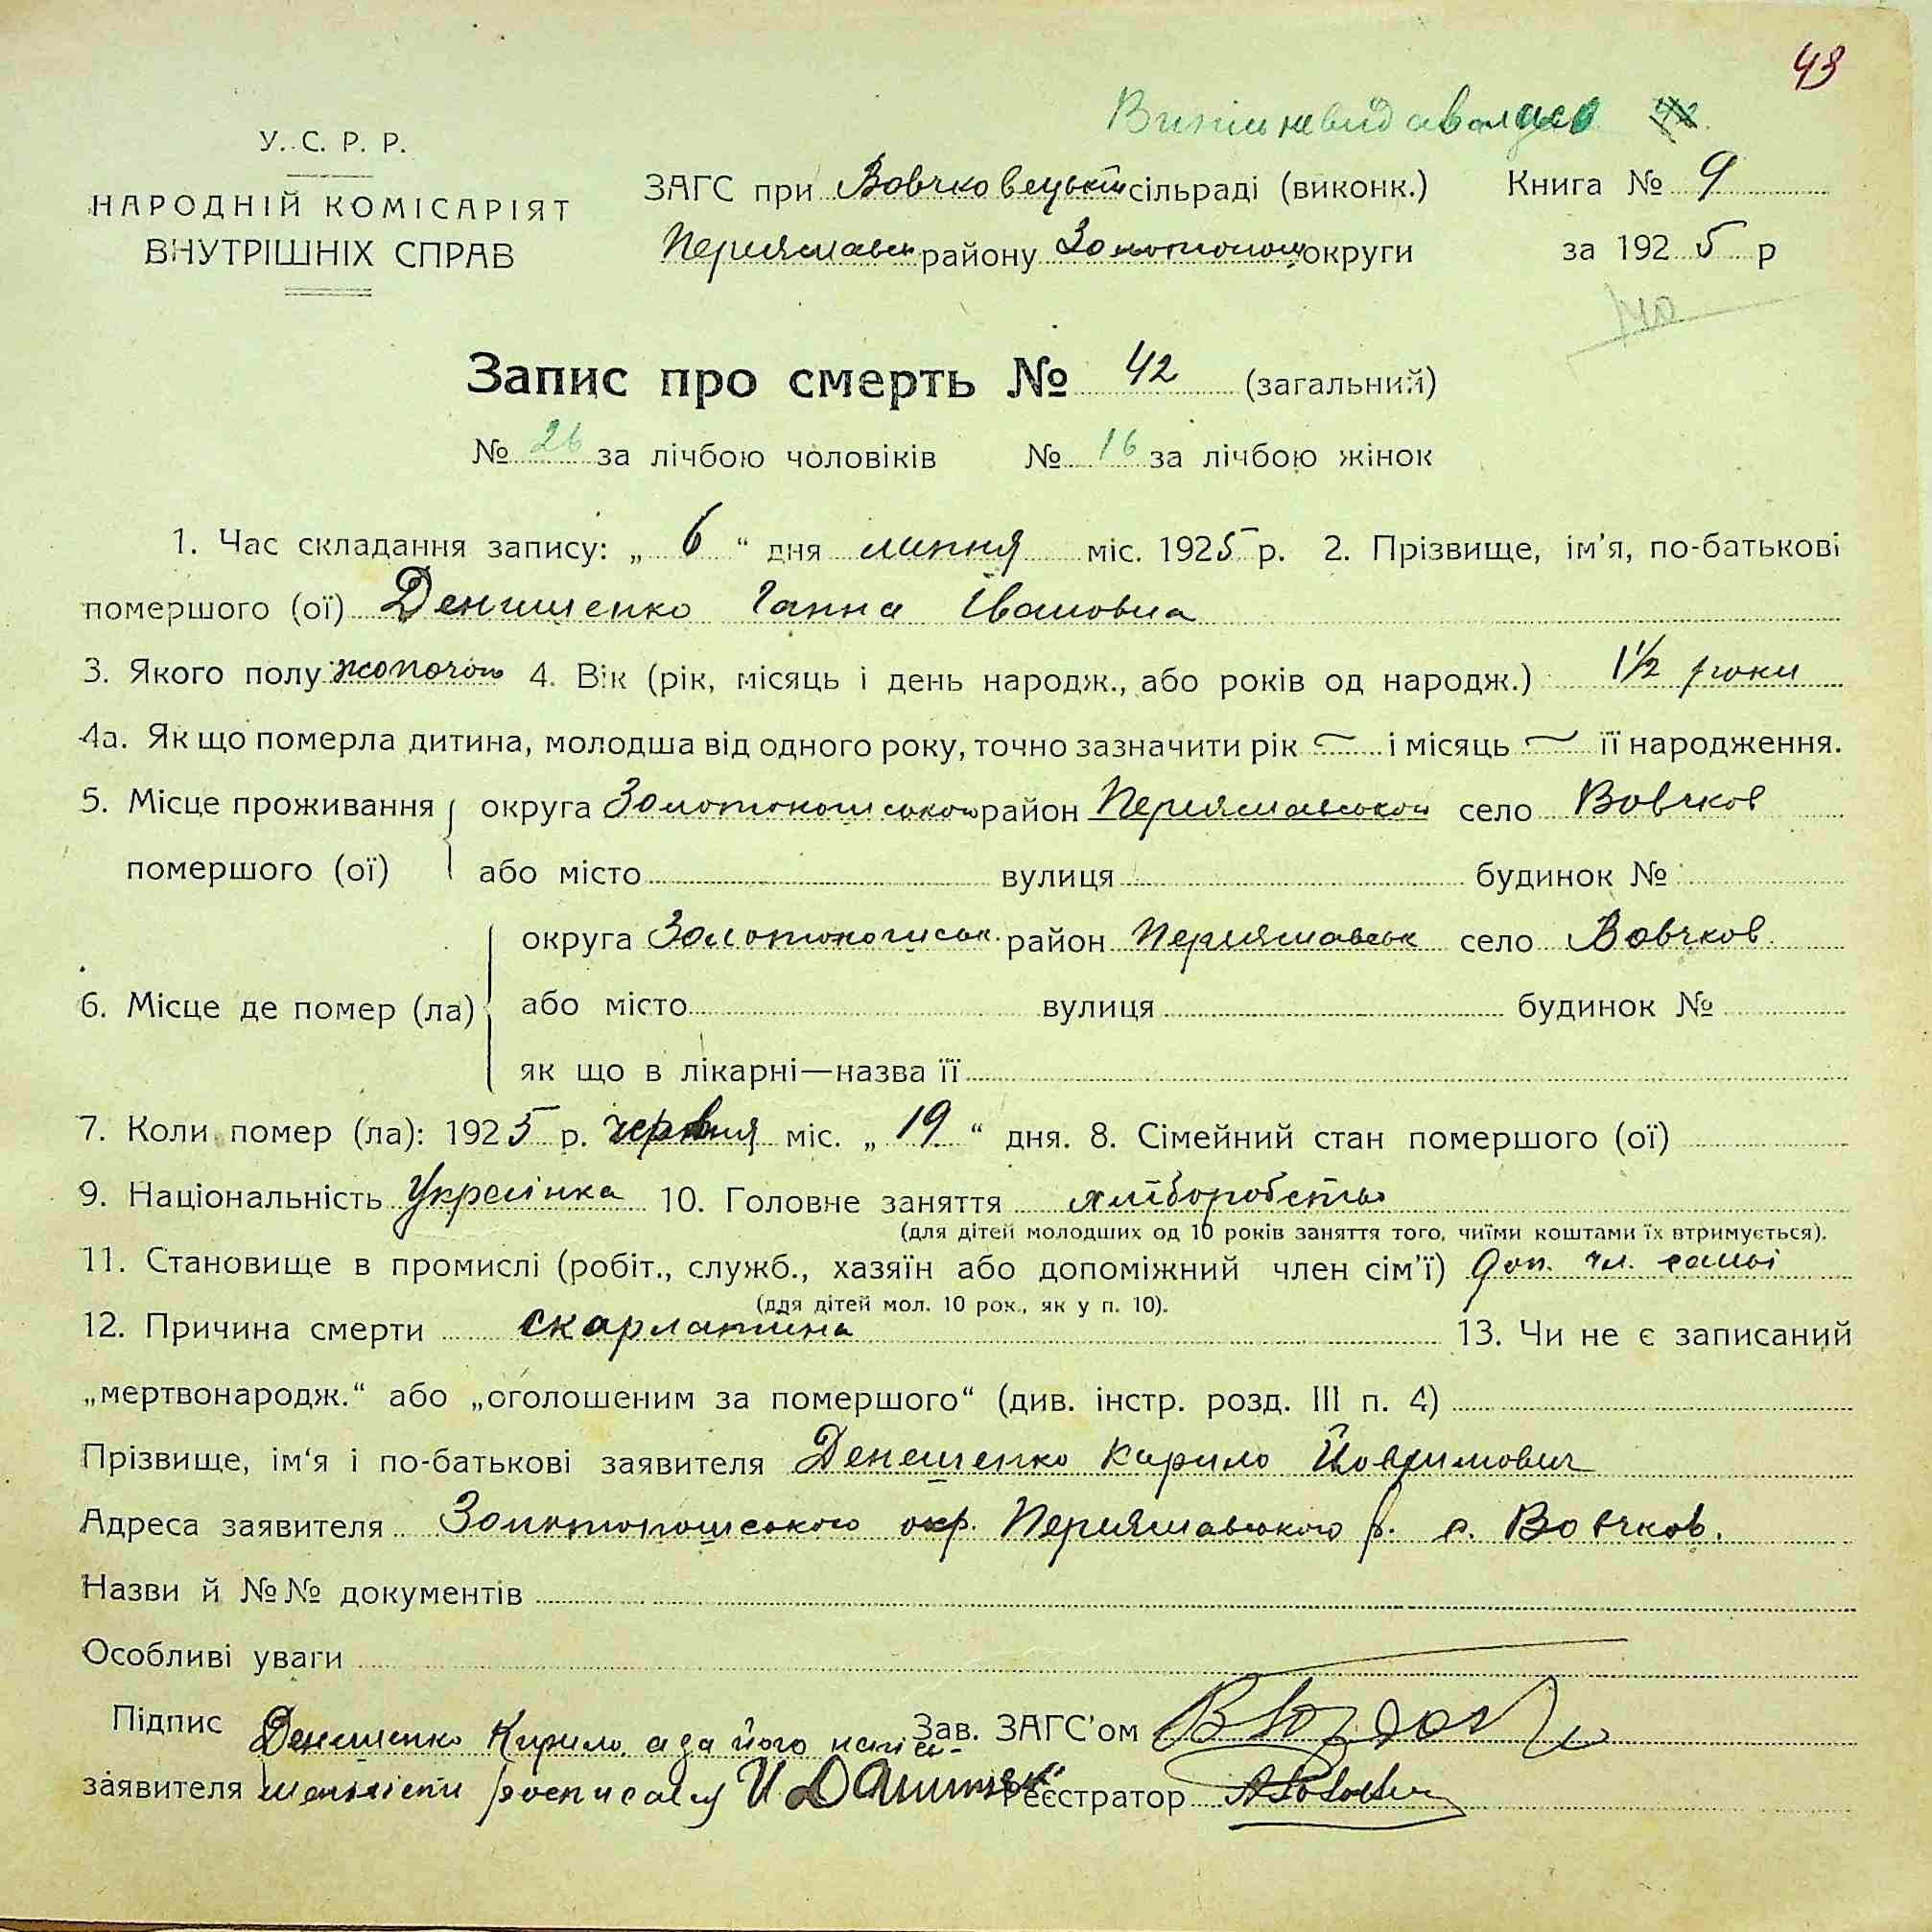 43
У. С. Р. Р.
НАРОДНІЙ КОМІСАРІЯТ
ВНУТРІШНІХ СПРАВ
ЗАГС при Вовчковецькій сільраді (виконк.) Книга № 9
Переяславськ району Золотонош округи за 1925 р
Запис про смерть № 42 (загальний)
№ 26 за лічбою чоловіків № 16 за лічбою жінок
1. Час складання запису: „ 6 “ дня липня міс. 1925 р. 2. Прізвище, ім'я, по-батькові
помершого (ої) Денишенко Ганна Івановна
3. Якого полу жоночого 4. Вік (рік, місяць і день народж., або років од народж.) 1½ роки
4а. Як що померла дитина, молодша від одного року, точно зазначити рік ~ і місяць ~ її народження.
5. Місце проживання округа Золотоношського район Переяславськой село Вовчков
помершого (ої) або місто вулиця будинок №
округа Золотоношськ. район Переяславськ село Вовчков
6. Місце де помер (ла) або місто вулиця будинок №
як що в лікарні—назва її
7. Коли помер (ла): 1925 р. червня міс. „ 19 “ дня. 8. Сімейний стан помершого (ої)
9. Національність Українка 10. Головне заняття хліборобство
(для дітей молодших од 10 років заняття того, чиїми коштами їх втримується).
11. Становище в промислі (робіт., служб., хазяїн або допоміжний член сім'ї) Доп. чл. самьі
(для дітей мол. 10 рок., як у п. 10).
12. Причина смерти скарлатина 13. Чи не є записаний
„мертвонародж.“ або „оголошеним за помершого“ (див. інстр. розд. III п. 4)
Прізвище, ім'я і по-батькові заявителя Денешенко Кирило
Адреса заявителя Золотоношського окр. Переяславського р. с. Вовчков.
Назви й №№ документів
Особливі уваги
Підпис Денишенко Кирило, а за його непись- Зав. ЗАГС'ом
заявителя менністю росписався Реєстратор